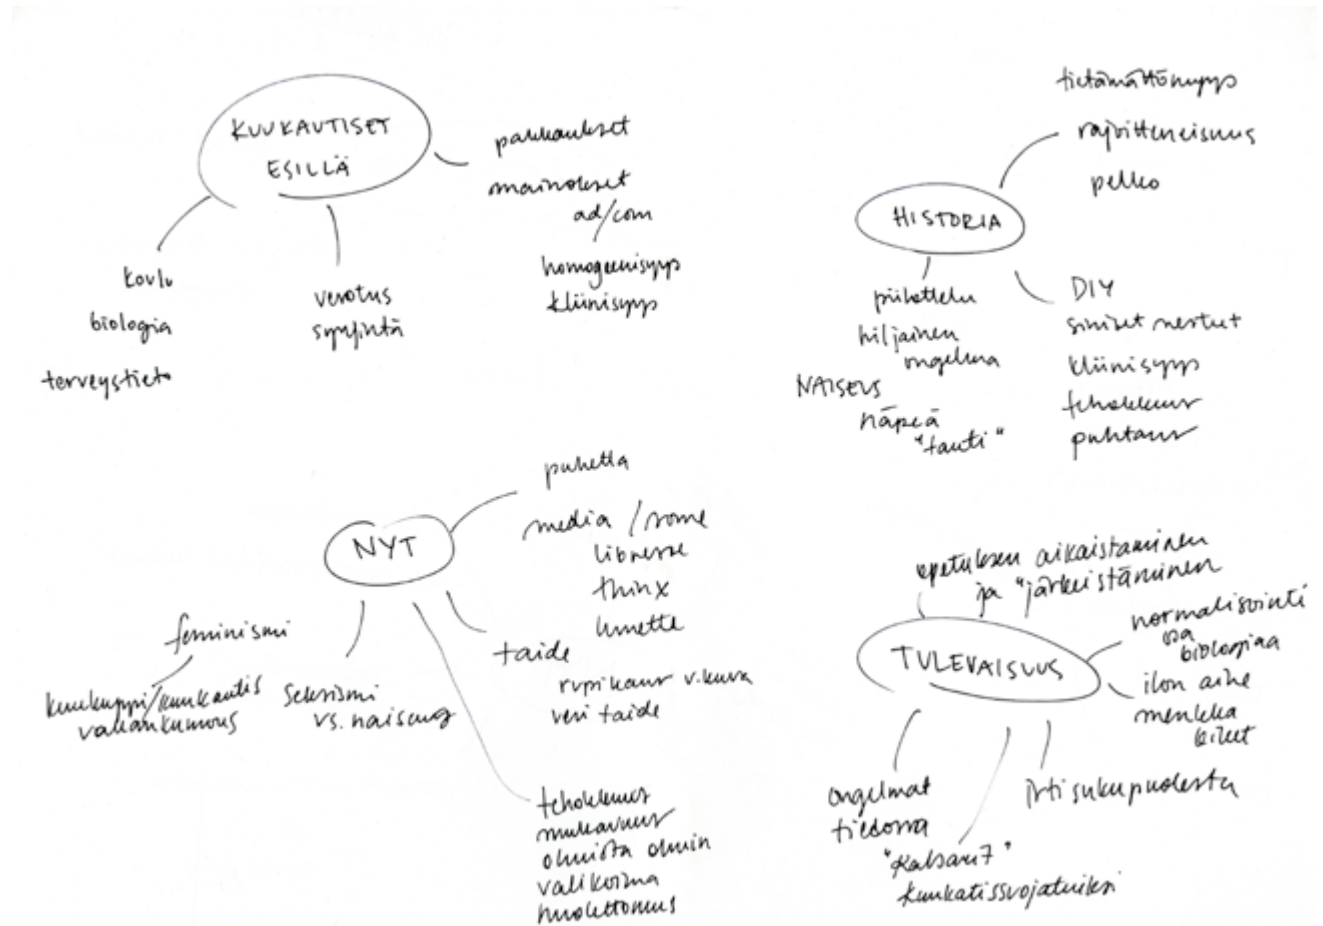 KUUKAUTISET
ESILLÄ
pakkaukset
mainokset
ad/com
homogeenisyys
kliinisyys
verotus
syrjintä
koulu
biologia
terveystieto
HISTORIA
tietämättömyys
rajoittuneisuus
pelko
piilottelu
hiljainen
ongelma
NAISEUS
häpeä
"tauti"
DIY
siniset nesteet
kliinisyys
tehokkuus
puhtaus
NYT
puhetta
media / some
libresse
thinx
lunette
taide
rupi kaur v.kuva
veri taide
feminismi
kuukuppi/kuukautis
vallankumous
Seksismi
vs. naiseus
tehokkuus
mukavuus
valikoima
huolettomuus
TULEVAISUUS
opetuksen aikaistaminen
ja "järkeistäminen
normalisointi
osa
biologiaa
ilon aihe
menkka
bileet
irti sukupuolesta
ongelmat
tiedossa
kuukatissuojatuiksi